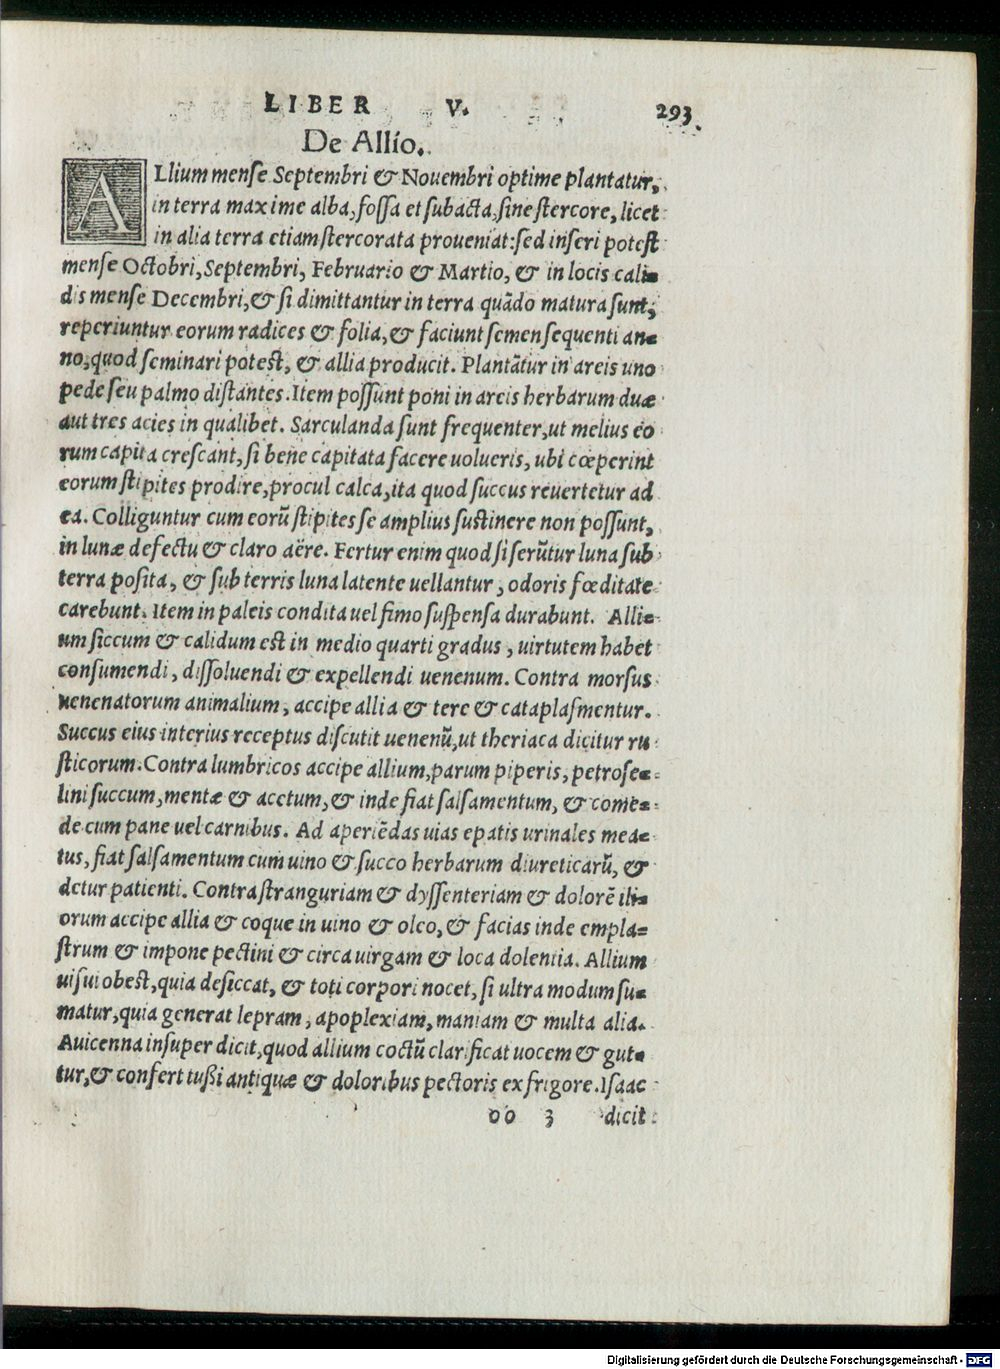 LIBER V. 293
De Allio.
ALlium mense Septembri & Nouembri optime plantatur,
in terra maxime alba, fossa et subacta, sine stercore, licet
in alia terra etiam stercorata proueniat: sed inseri potest
mense Octobri, Septembri, Februario & Martio, & in locis cali-
dis mense Decembri, & si dimittantur in terra quãdo matura sunt,
reperiuntur eorum radices & folia, & faciunt semen sequenti an-
no, quod seminari potest, & allia producit. Plantãtur in areis uno
pede seu palmo distantes. Item possunt poni in areis herbarum duæ
aut tres acies in qualibet. Sarculanda sunt frequenter, ut melius eo
rum capita crescant, si bene capitata facere uolueris, ubi cœperint
eorum stipites prodire, procul calca, ita quod succus reuertetur ad
ea. Colliguntur cum eorũ stipites se amplius sustinere non possunt,
in lunæ defectu & claro aëre. Fertur enim quod si serũtur luna sub
terra posita, & sub terris luna latente uellantur, odoris fœditate
carebunt. Item in paleis condita uel fimo suspensa durabunt. Alli-
um siccum & calidum est in medio quarti gradus, uirtutem habet
consumendi, dissoluendi & expellendi uenenum. Contra morsus
uenenatorum animalium, accipe allia & tere & cataplasmentur.
Succus eius interius receptus discutit uenenũ, ut theriaca dicitur ru
sticorum. Contra lumbricos accipe allium, parum piperis, petrose-
lini succum, mentæ & acetum, & inde fiat salsamentum, & come-
de cum pane uel carnibus. Ad aperiẽdas uias epatis urinales mea-
tus, fiat salsamentum cum uino & succo herbarum diureticarũ, &
detur patienti. Contra stranguriam & dyssenteriam & dolorẽ ili-
orum accipe allia & coque in uino & oleo, & facias inde empla-
strum & impone pectini & circa uirgam & loca dolentia. Allium
uisui obest, quia desiccat, & toti corpori nocet, si ultra modum su-
matur, quia generat lepram, apoplexiam, maniam & multa alia.
Auicenna insuper dicit, quod allium coctũ clarificat uocem & gut-
tur, & confert tußi antiquæ & doloribus pectoris ex frigore. Isaac
oo 3 dicit
Digitalisierung gefördert durch die Deutsche Forschungsgemeinschaft - DFG